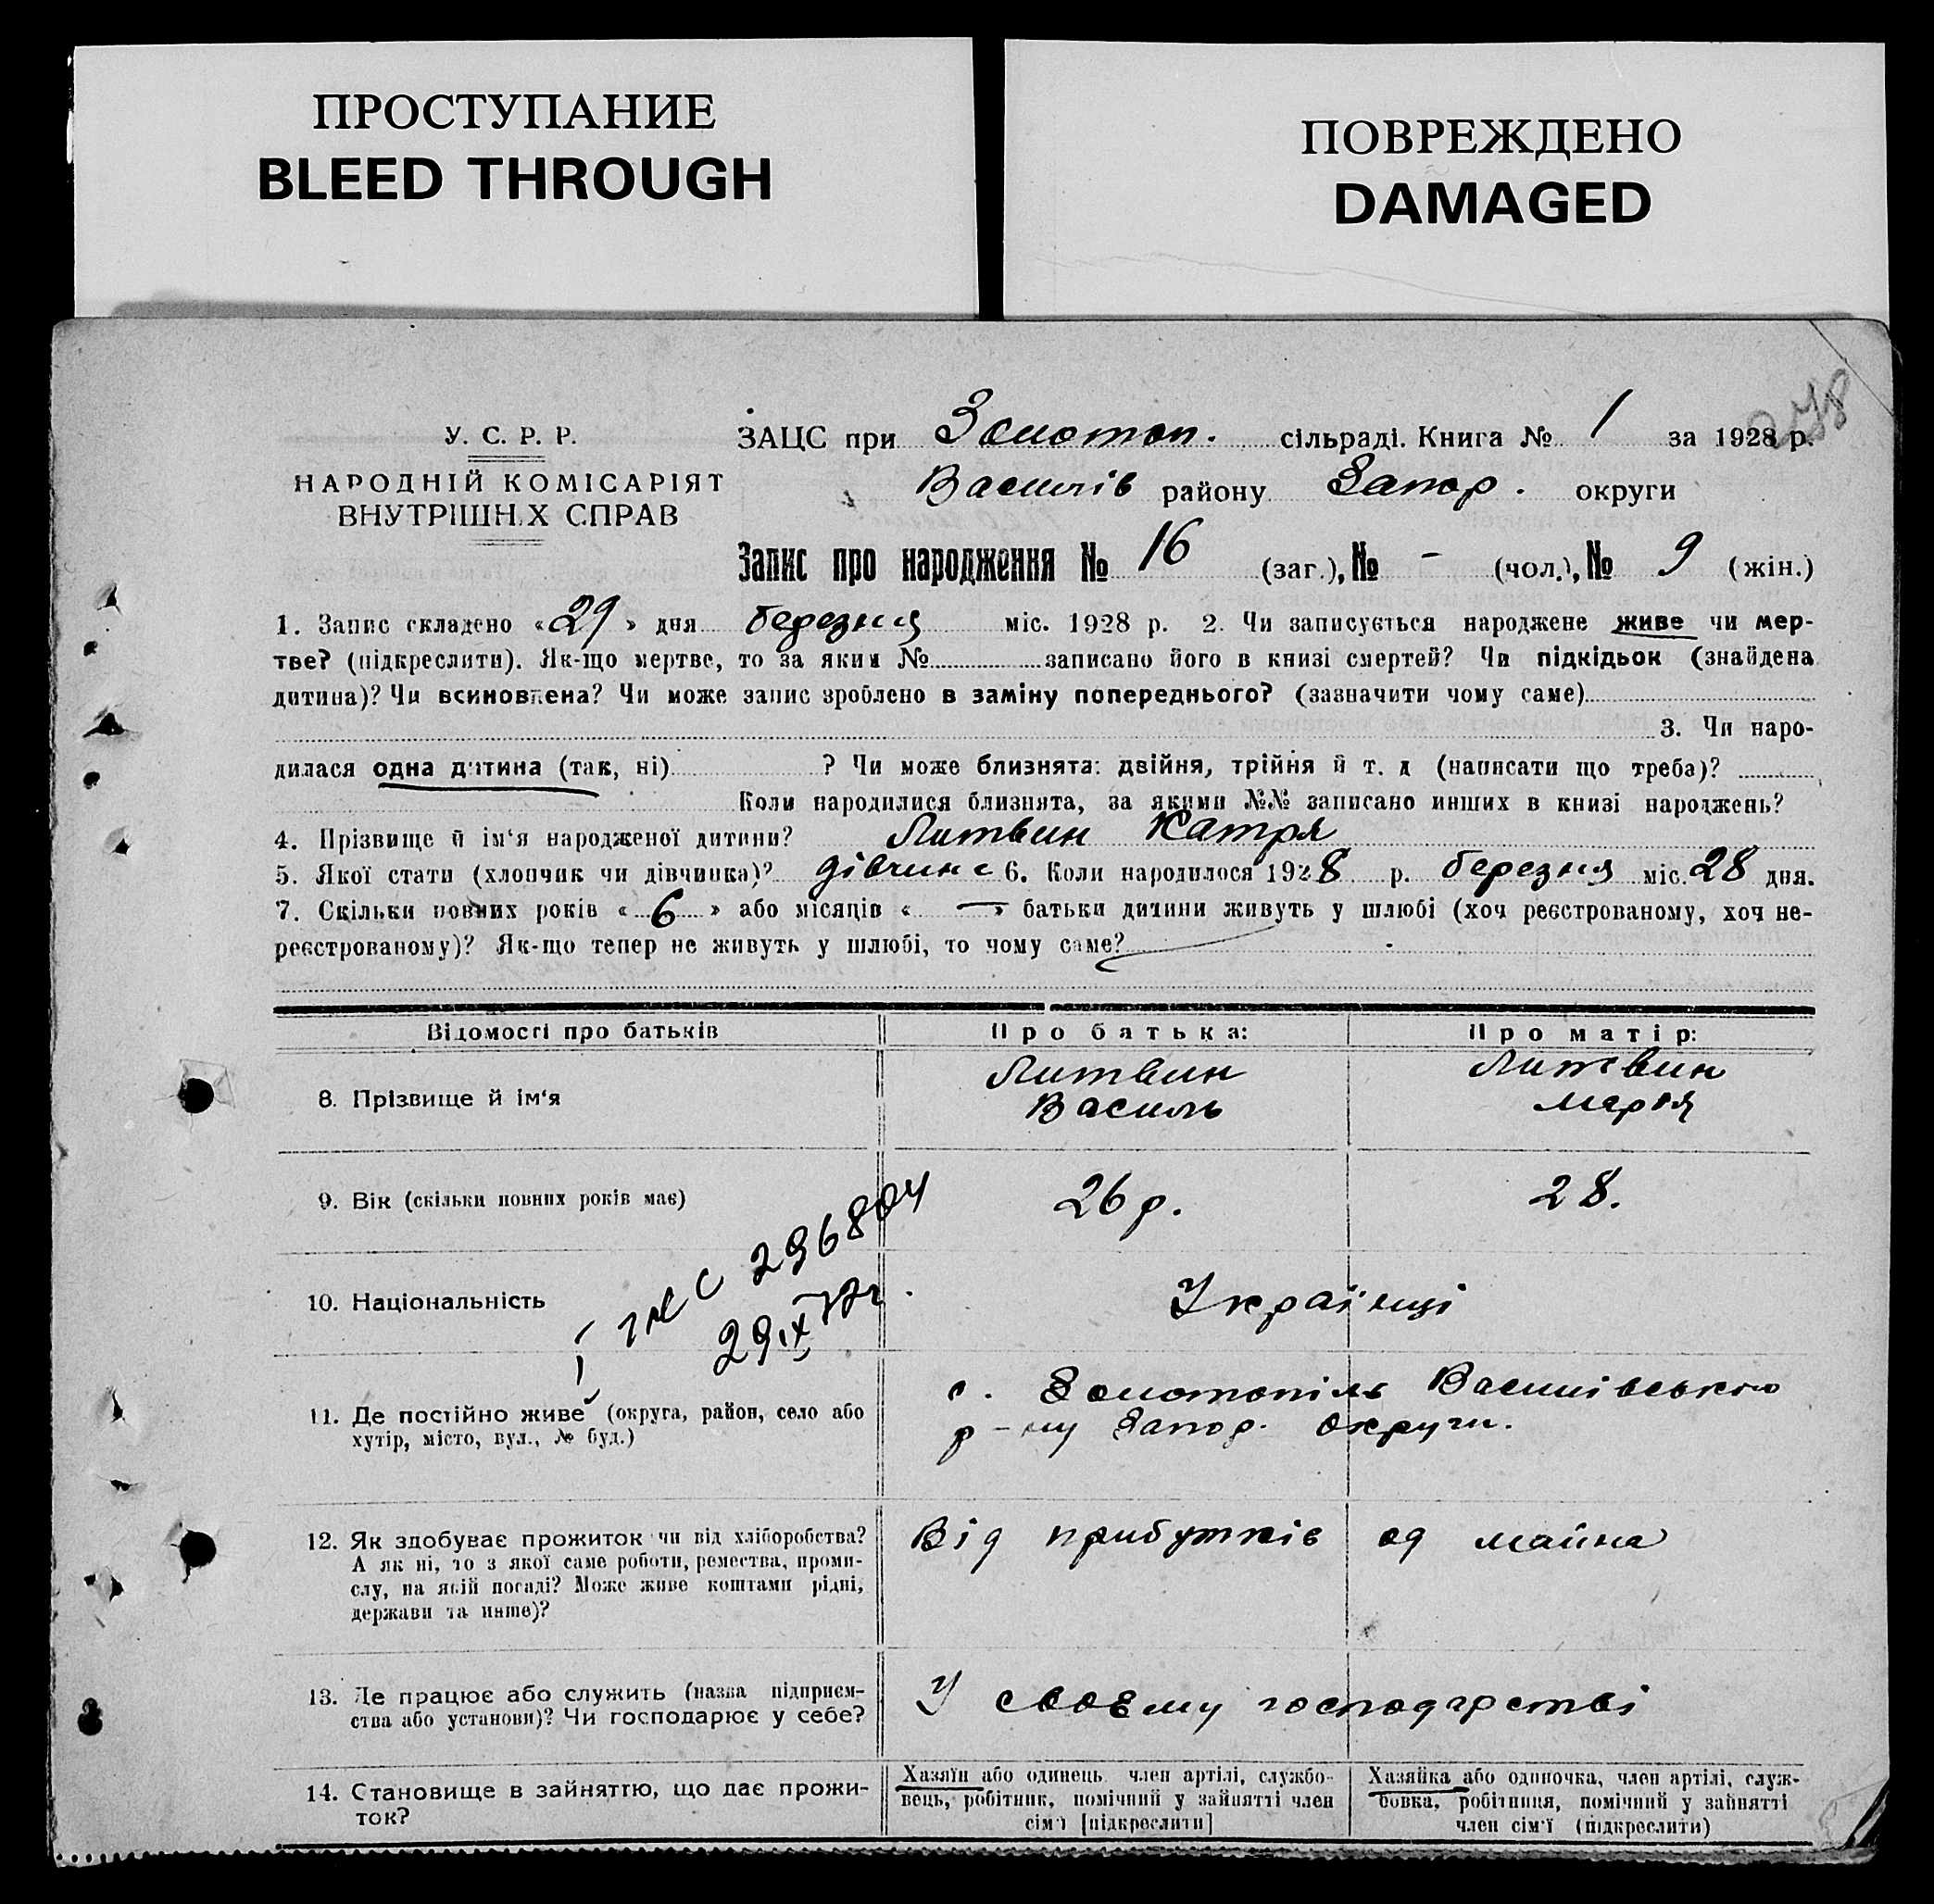 ПРОСТУПАНИЕ
BLEED THROUGH
ПОВРЕЖДЕНО
DAMAGED
278
У. С. Р. Р.
НАРОДНІЙ КОМІСАРІЯТ
ВНУТРІШН.Х СПРАВ
ЗАЦС при Золотоп. сільраді. Книга № 1 за 1928 р.
Василів району Запор. округи
Запис про народження № 16 (заг.), № - (чол.), № 9 (жін.)
1. Запис складено «29» дня березня міс. 1928 р. 2. Чи записується народжене живе чи мер-
тве? (підкреслити). Як-що мертве, то за яким № записано його в книзі смертей? Чи підкідьок (знайдена
дитина)? Чи всиновлена? Чи може запис зроблено в заміну попереднього? (зазначити чому саме)
3. Чи наро-
дилася одна дитина (так, ні) ? Чи може близнята: двійня, трійня й т. д (написати що треба)?
Коли народилися близнята, за якими №№ записано инших в книзі народжень?
4. Прізвище й ім‘я народженої дитини? Литвин Катря
5. Якої стати (хлопчик чи дівчинка)? дівчина 6. Коли народилося 1928 р. березня міс. 28 дня.
7. Скільки повних років «6» або місяців «—» батьки дитини живуть у шлюбі (хоч реєстрованому, хоч не-
реєстрованому)? Як-що тепер не живуть у шлюбі, то чому саме?
Відомості про батьків
Про батька:
Про матір:
8. Прізвище й ім‘я
Литвин
Василь
Литвин
Марія
9. Вік (скільки повних років має)
26 р.
28.
10. Національність
Українці
296804
29.IX
11. Де постійно живе (округа, район, село або
хутір, місто, вул., № буд.)
с. Золотопіль Василівського
р-ну Запор. округи.
12. Як здобуває прожиток чи від хліборобства?
А як ні, то з якої саме роботи, ремества, проми-
слу, на якій посаді? Може живе коштами рідні,
держави та инше)?
Від прибутків од майна
13. Де працює або служить (назва підприєм-
ства або установи)? Чи господарює у себе?
У своєму господарстві
14. Становище в зайняттю, що дає прожи-
ток?
Хазяїн або одинець, член артілі, службо-
вець, робітник, помічний у зайнятті член
сім‘ї [підкреслити]
Хазяйка або одиночка, член артілі, служ-
бовка, робітниця, помічний у зайнятті
член сім‘ї (підкреслити)